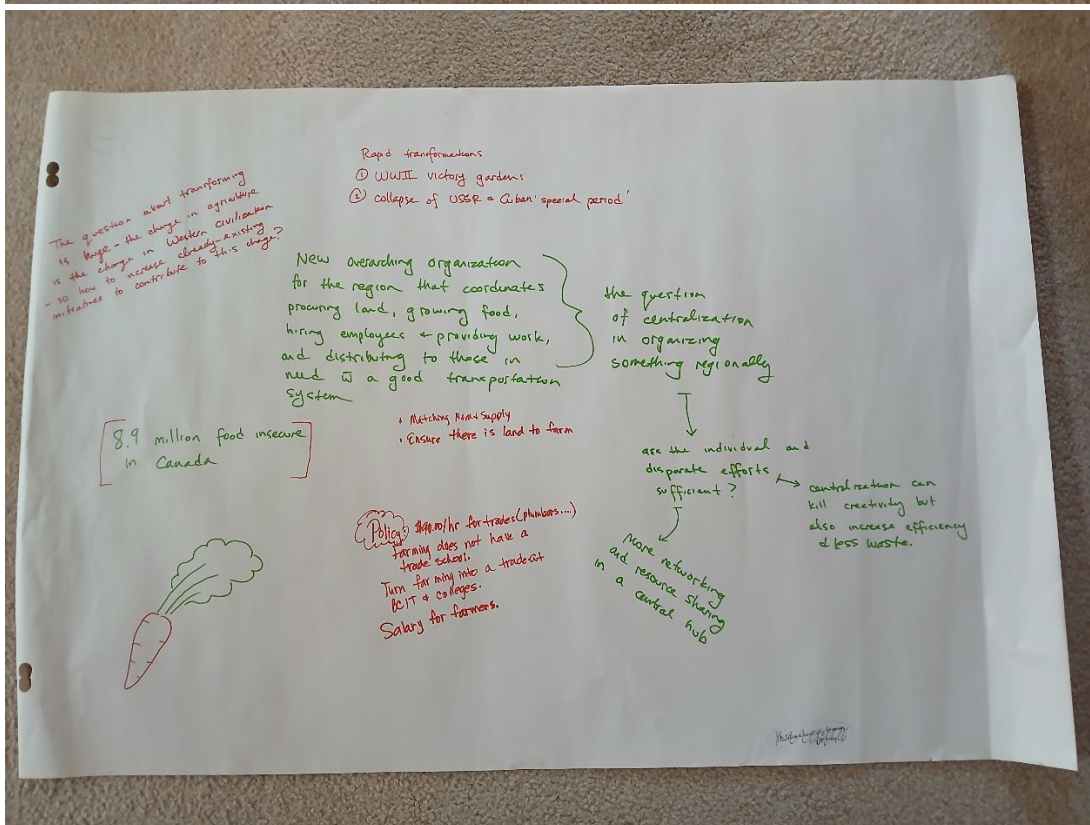 Rapid transformations
① WWII victory gardens
② collapse of USSR & Cuban 'special period'
The question about transforming
is huge - the change in agriculture
is the change in Western Civilization
- so how to increase already-existing
initiatives to contribute to this change?
New overarching organization
for the region that coordinates
procuring land, growing food,
hiring employees & providing work,
and distributing to those in
need w̄ a good transportation
system
the question
of centralization
in organizing
something regionally
are the individual and
disparate efforts
sufficient?
centralization can
kill creativity but
also increase efficiency
& less waste.
More networking
and resource sharing
in a central hub
• Matching Need & Supply
• Ensure there is land to farm
8.9 million food insecure
in Canada
Policy: $90.00/hr for trades (plumbers....)
farming does not have a
trade school.
Turn farming into a trade at
BCIT & colleges.
Salary for farmers.